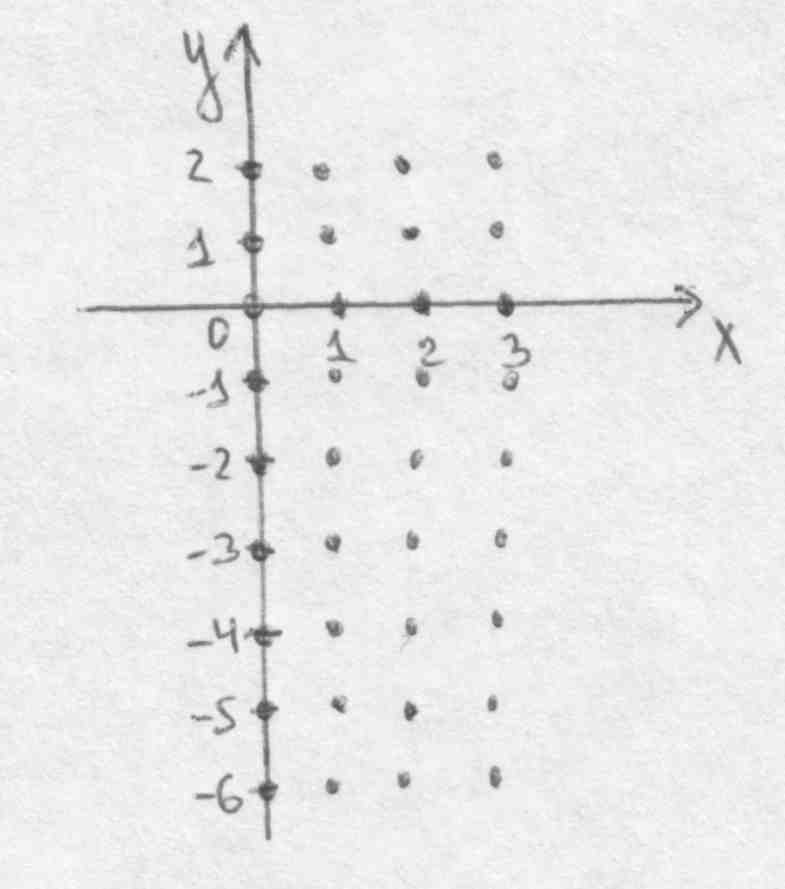 y
2
1
0 1 2 3 x
-1
-2
-3
-4
-5
-6